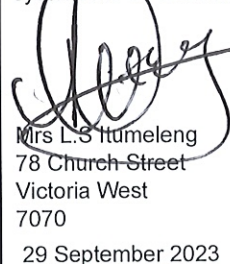 Mrs L.S Itumeleng
78 Church Street
Victoria West
7070
29 September 2023